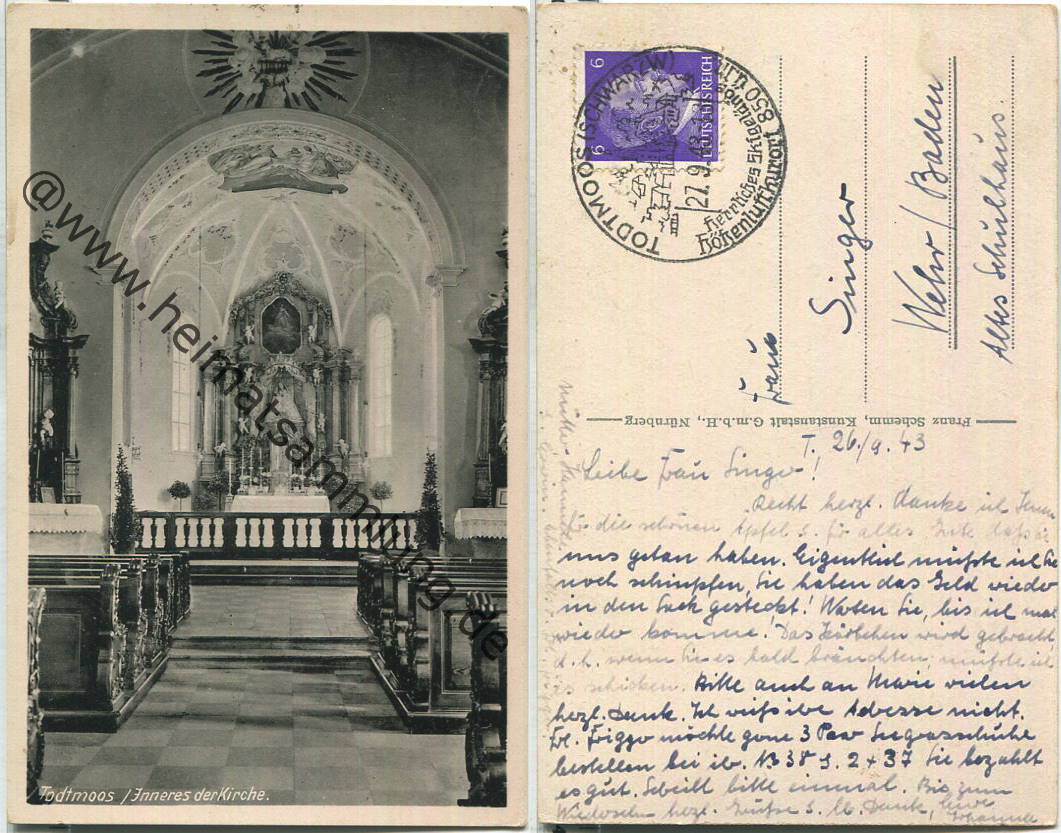 @www.heimatsammlung.de
Todtmoos / Inneres der Kirche.
6 6
DEUTSCHES REICH
TODTMOOS (SCHWARZW)
27.9.43
Herrliches Skigelände
Höhenluftkurort 850
Frau
Singer
Wehr/Baden
Altes Schulhaus.
Franz Schemm, Kunstanstalt G.m.b.H., Nürnberg
T. 26./9.43
Liebe Frau Singer!
Recht herzl. Danke ich Ihnen
für die schönen Äpfel u. für alles Gute das Sie
uns getan haben. Eigentlich müßte ich Sie
noch schimpfen, Sie haben das Geld wieder
in den Sack gesteckt! Warten Sie, bis ich mal
wieder komme. Das Körbchen wird gebracht,
d. h. wenn Sie es bald bräuchten, müßte ich
es schicken. Bitte auch an Marie vielen
herzl. Dank. Ich weiß ihre Adresse nicht.
Frl. möchte gerne 3 Paar Seegrasschuhe
bestellen bei ihr. 38 2 + 37 Sie bezahlt
es gut. Schreibt bitte einmal. Bis zum
Wiedersehn herzl. Grüße u. Dank, Eure
Johanna